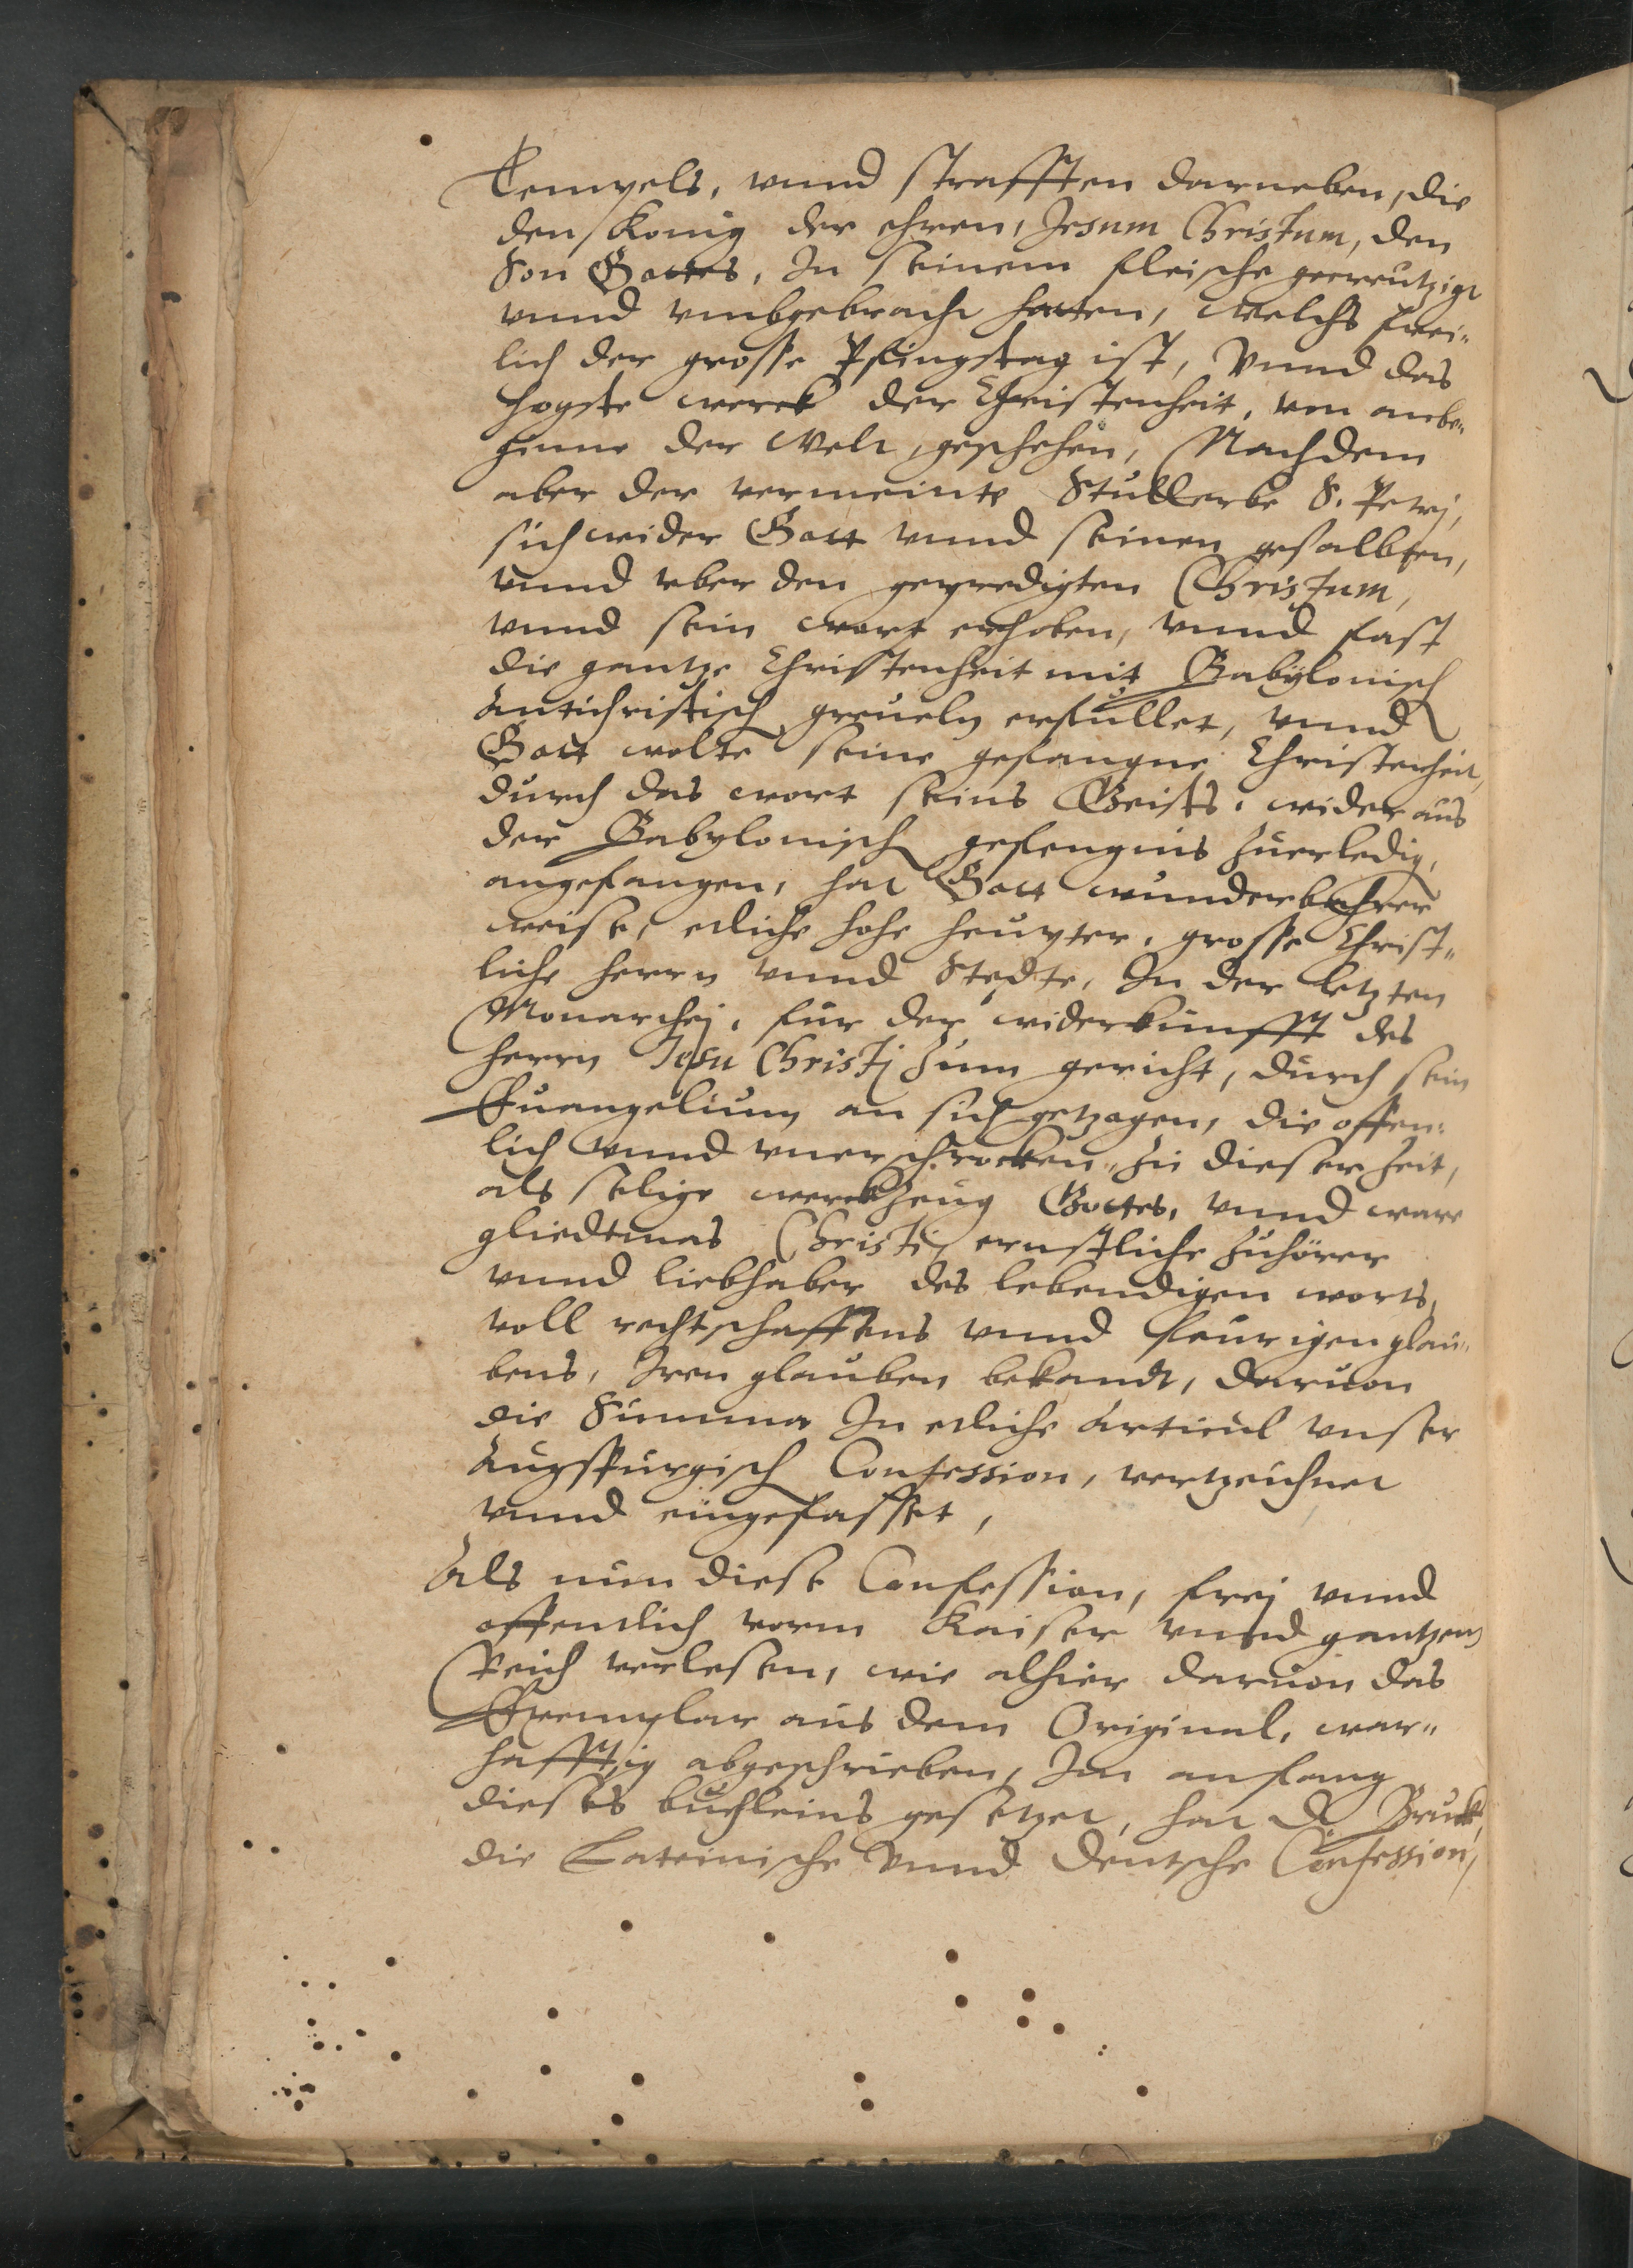 Tempels, vnnd strafften darneben, die
den König der ehren, Jesum Christum, den
Son Gottes, In seinem fleische gecreutzigt
vnnd vmbgebracht hatten, Welchs frei-
lich der grosse Pfingstag ist, Vnnd das
hogste werck der Christenheit, von anbe-
ginne der Welt, geschehen, Nachdem
aber der vermeinte Stullerbe S. Petrj,
sich wider Gott vnnd seinen gesalbten,
vnnd vber den gepredigten Christum,
vnnd sein wort erhoben, vnnd fast
die gantze Christenheit mit Babylonisch
Antichristisch greueln erfullet, vnnd
Gott wolte seine gefangne Christenheit,
durch das wort seins Geists, wider aus
der Babylonisch gefengnis zuerledig,
angefangen, hat Gott wunderbahrer
weise, etliche hohe heupter, grosse Christ-
liche herrn vnnd Stedte, In der letzten
Monarchej, fur der widerkunfft des
herrn Jesu Christj zum gericht, durch sein
Euangelium an sich getzogen, die offen-
lich vnnd vnerschrocken, zu dieser zeit,
als selige werckzeug Gottes, vnnd ware
gliedtmas Christi, ernstliche zuhörer
vnnd liebhaber des lebendigen worts,
voll rechtschaffens vnnd feurigen glau-
bens, Iren glauben bekandt, daruon
die Summa In etliche Articul vnser
Augspurgisch Confession, vertzeichnet
vnnd eingefasset,
Als nun diese Confession, frej vnnd
offentlich vorm Kaiser vnnd gantzem
Reich verlesen, wie alhier daruon das
Exemplar aus dem Original, war-
hafftig abgeschrieben, Im anfang
dieses buchleins gesetzet, hat D. Bruck,
die Lateinische Vnnd Deutsche Confession,